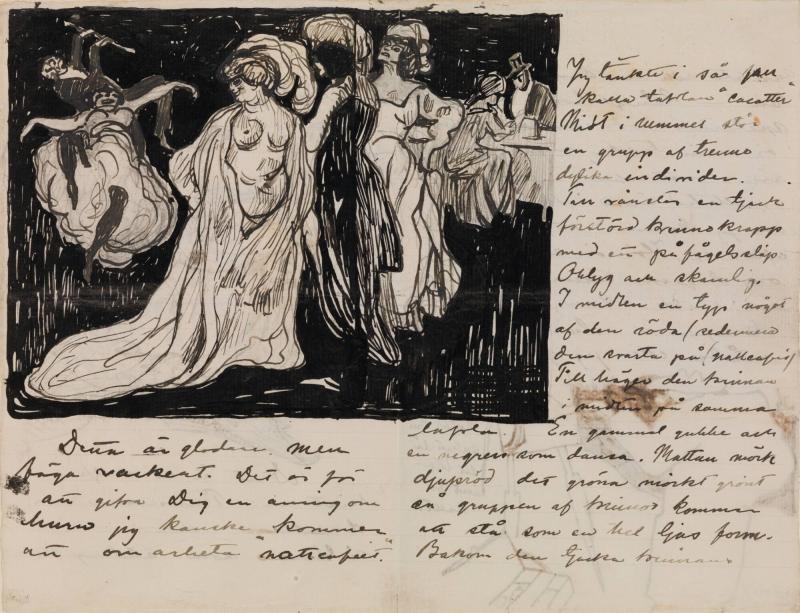 Jag tänkte i så fall
kalla taflan "Cocotter"
Midt i rummet stå
en grupp af trenne
dylika individer.
Till vänster en tjock
förstörd kvinnokropp
med en påfågelsslöp
Oblyg och skamlig.
I midten en typ något
af den röda (sedermera
den svarta på (nattcafeet)
Till höger den kvinnan
i midten på samma
tafla. En gammal gubbe och
en negress som dansa. Mattan mörk
djupröd det gröna mörkt grönt
så gruppen af kvinnor kommer
att stå som en hel ljus form.
Bakom den tjocka kvinnans
Denna är gladare men
föga vackert. Det är för
att gifva Dig en aning om
huru jag kanske kommer
att om arbeta "nattcafeet".